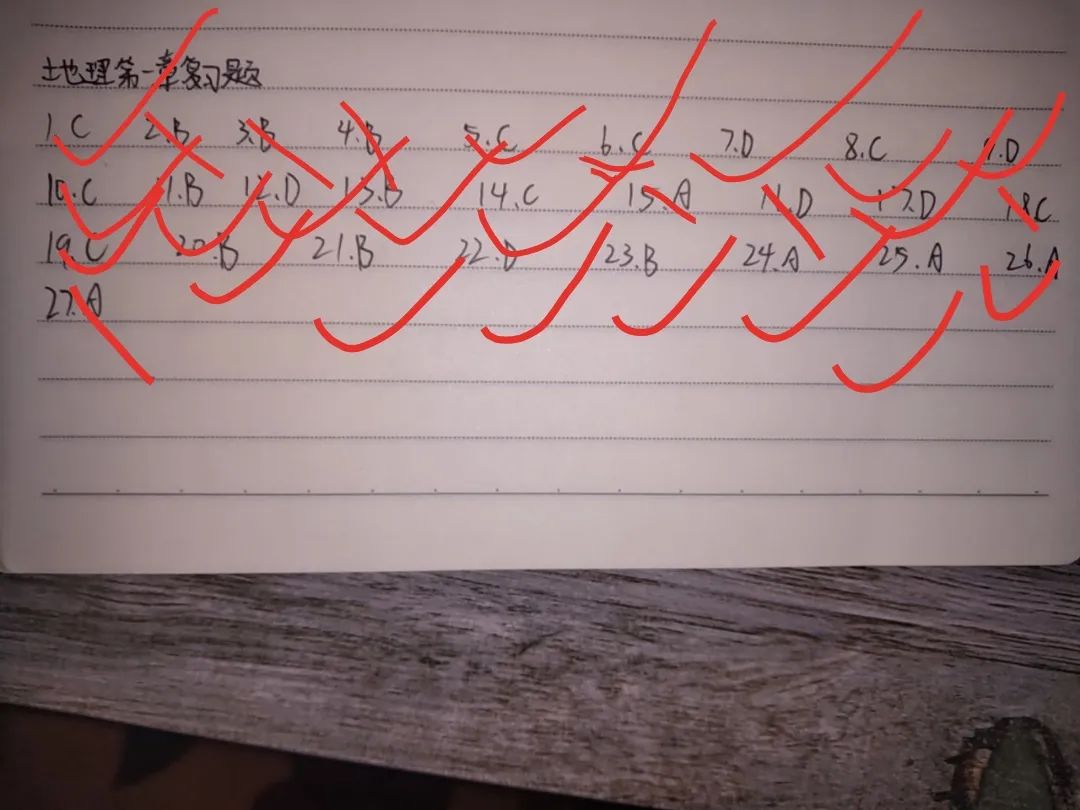 地理第一章复习题
1.C 2.B 3.B 4.B 5.C 6.C 7.D 8.C 9.D
10.C 11.B 12.D 13.B 14.C 15.A 16.D 17.D 18C
19.C 20.B 21.B 22.D 23.B 24.A 25.A 26.A
27.A